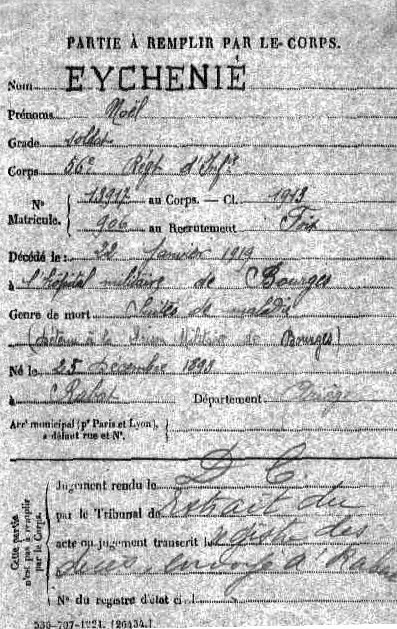 PARTIE À REMPLIR PAR LE CORPS.
Nom EYCHENIÉ
Prénoms Noël
Grade soldat
Corps 56e Régt d'Infie
No Matricule. 13912 au Corps. — Cl. 1913
906 au Recrutement Foix
Décédé le : 22 Janvier 1919
à l'hôpital militaire de Bourges
Genre de mort Suites de maladie
(détenu à la Prison Militaire de Bourges)
Né le 25 Décembre 1893
à Rabat Département Ariège
Arrt municipal (pr Paris et Lyon), à défaut rue et No.
Cette partie n'est pas à remplir par le Corps.
D C
Jugement rendu le
par le Tribunal de Extrait du
acte ou jugement transcrit le registre des
à Rabat
No du registre d'état civil
536-707-1921. [26434.]